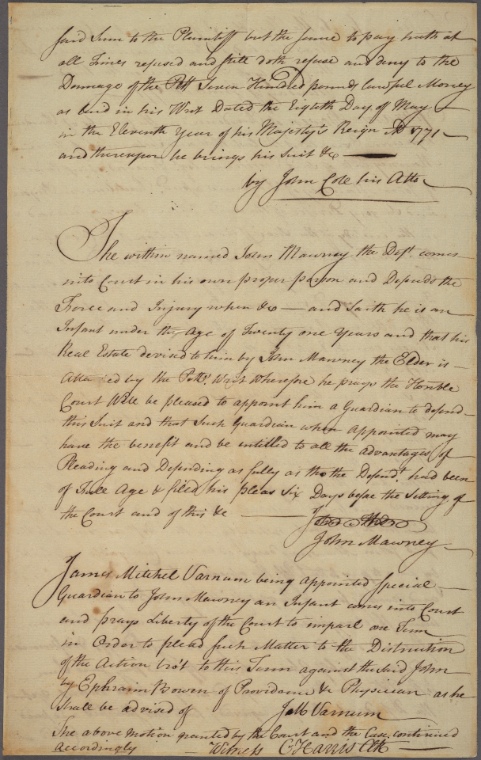 said Sum to the Plaintiff but the same to pay hath at
all Times refused and still doth refuse and deny to the
Dammage of the Pltf Seven Hundred pounds Lawful Money
as laid in his Writ Dated the Eighth Day of May
in the Eleventh Year of his Majesty's Reign AD 1771
and thereupon he brings his Suit &c
by John Cole his Atto
The within named John Mawney the Deft comes
into Court in his own proper person and Defends the
Force and Injury when &c — and Saith he is an
Infant under the Age of Twenty one Years and that his
Real Estate devised to him by John Mawney the Elder is
Attached by the Pltfs Writ Wherefore he prays the Honble
Court Will be pleased to appoint him a Guardian to defend
this Suit and that such Guardian when Appointed may
have the benefit and be entitled to all the advantages of
Pleading and Defending as fully as tho the Defendt had been
of Full Age & filed his pleas Six Days before the Setting of
the Court and of this &c
John Mawney
James Mitchel Varnum being appointed Special
Guardian to John Mawney an Infant comes into Court
and prays Liberty of the Court to imparl one Term
in Order to plead such Matter to the Distruction
of the Action bro't to this Term against the said John
by Ephraim Bowen of Providence &c Physician as he
shall be advised of JM Varnum
The above motion granted by the Court and the Case continued
accordingly Witness C Harris Clk